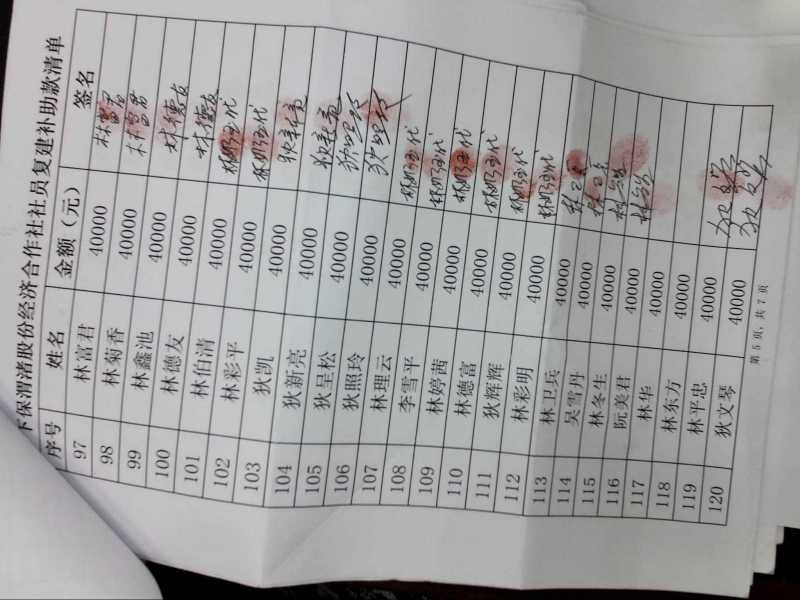 下保渭渚股份经济合作社社员复建补助款清单
序号 姓名 金额（元） 签名
97 林富君 40000 林富君
98 林菊香 40000 林富君
99 林鑫池 40000 林德友
100 林德友 40000 林德友
101 林伯清 40000
102 林彩平 40000
103 狄凯 40000 狄新亮
104 狄新亮 40000 狄新亮
105 狄呈松 40000
106 狄照玲 40000
107 林理云 40000
108 李雪平 40000
109 林婷茜 40000
110 林德富 40000
111 狄辉辉 40000
112 林彩明 40000
113 林卫兵 40000
114 吴雪丹 40000
115 林冬生 40000
116 阮美君 40000
117 林华 40000
118 林东方 40000
119 林平忠 40000
120 狄文琴 40000
第 5 页，共 7 页